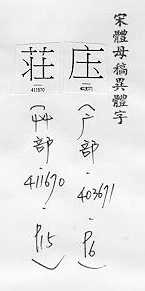 宋體母稿異體字
庄
(广部·403671·P6)
荘
411670
(艸部·411670·P15)